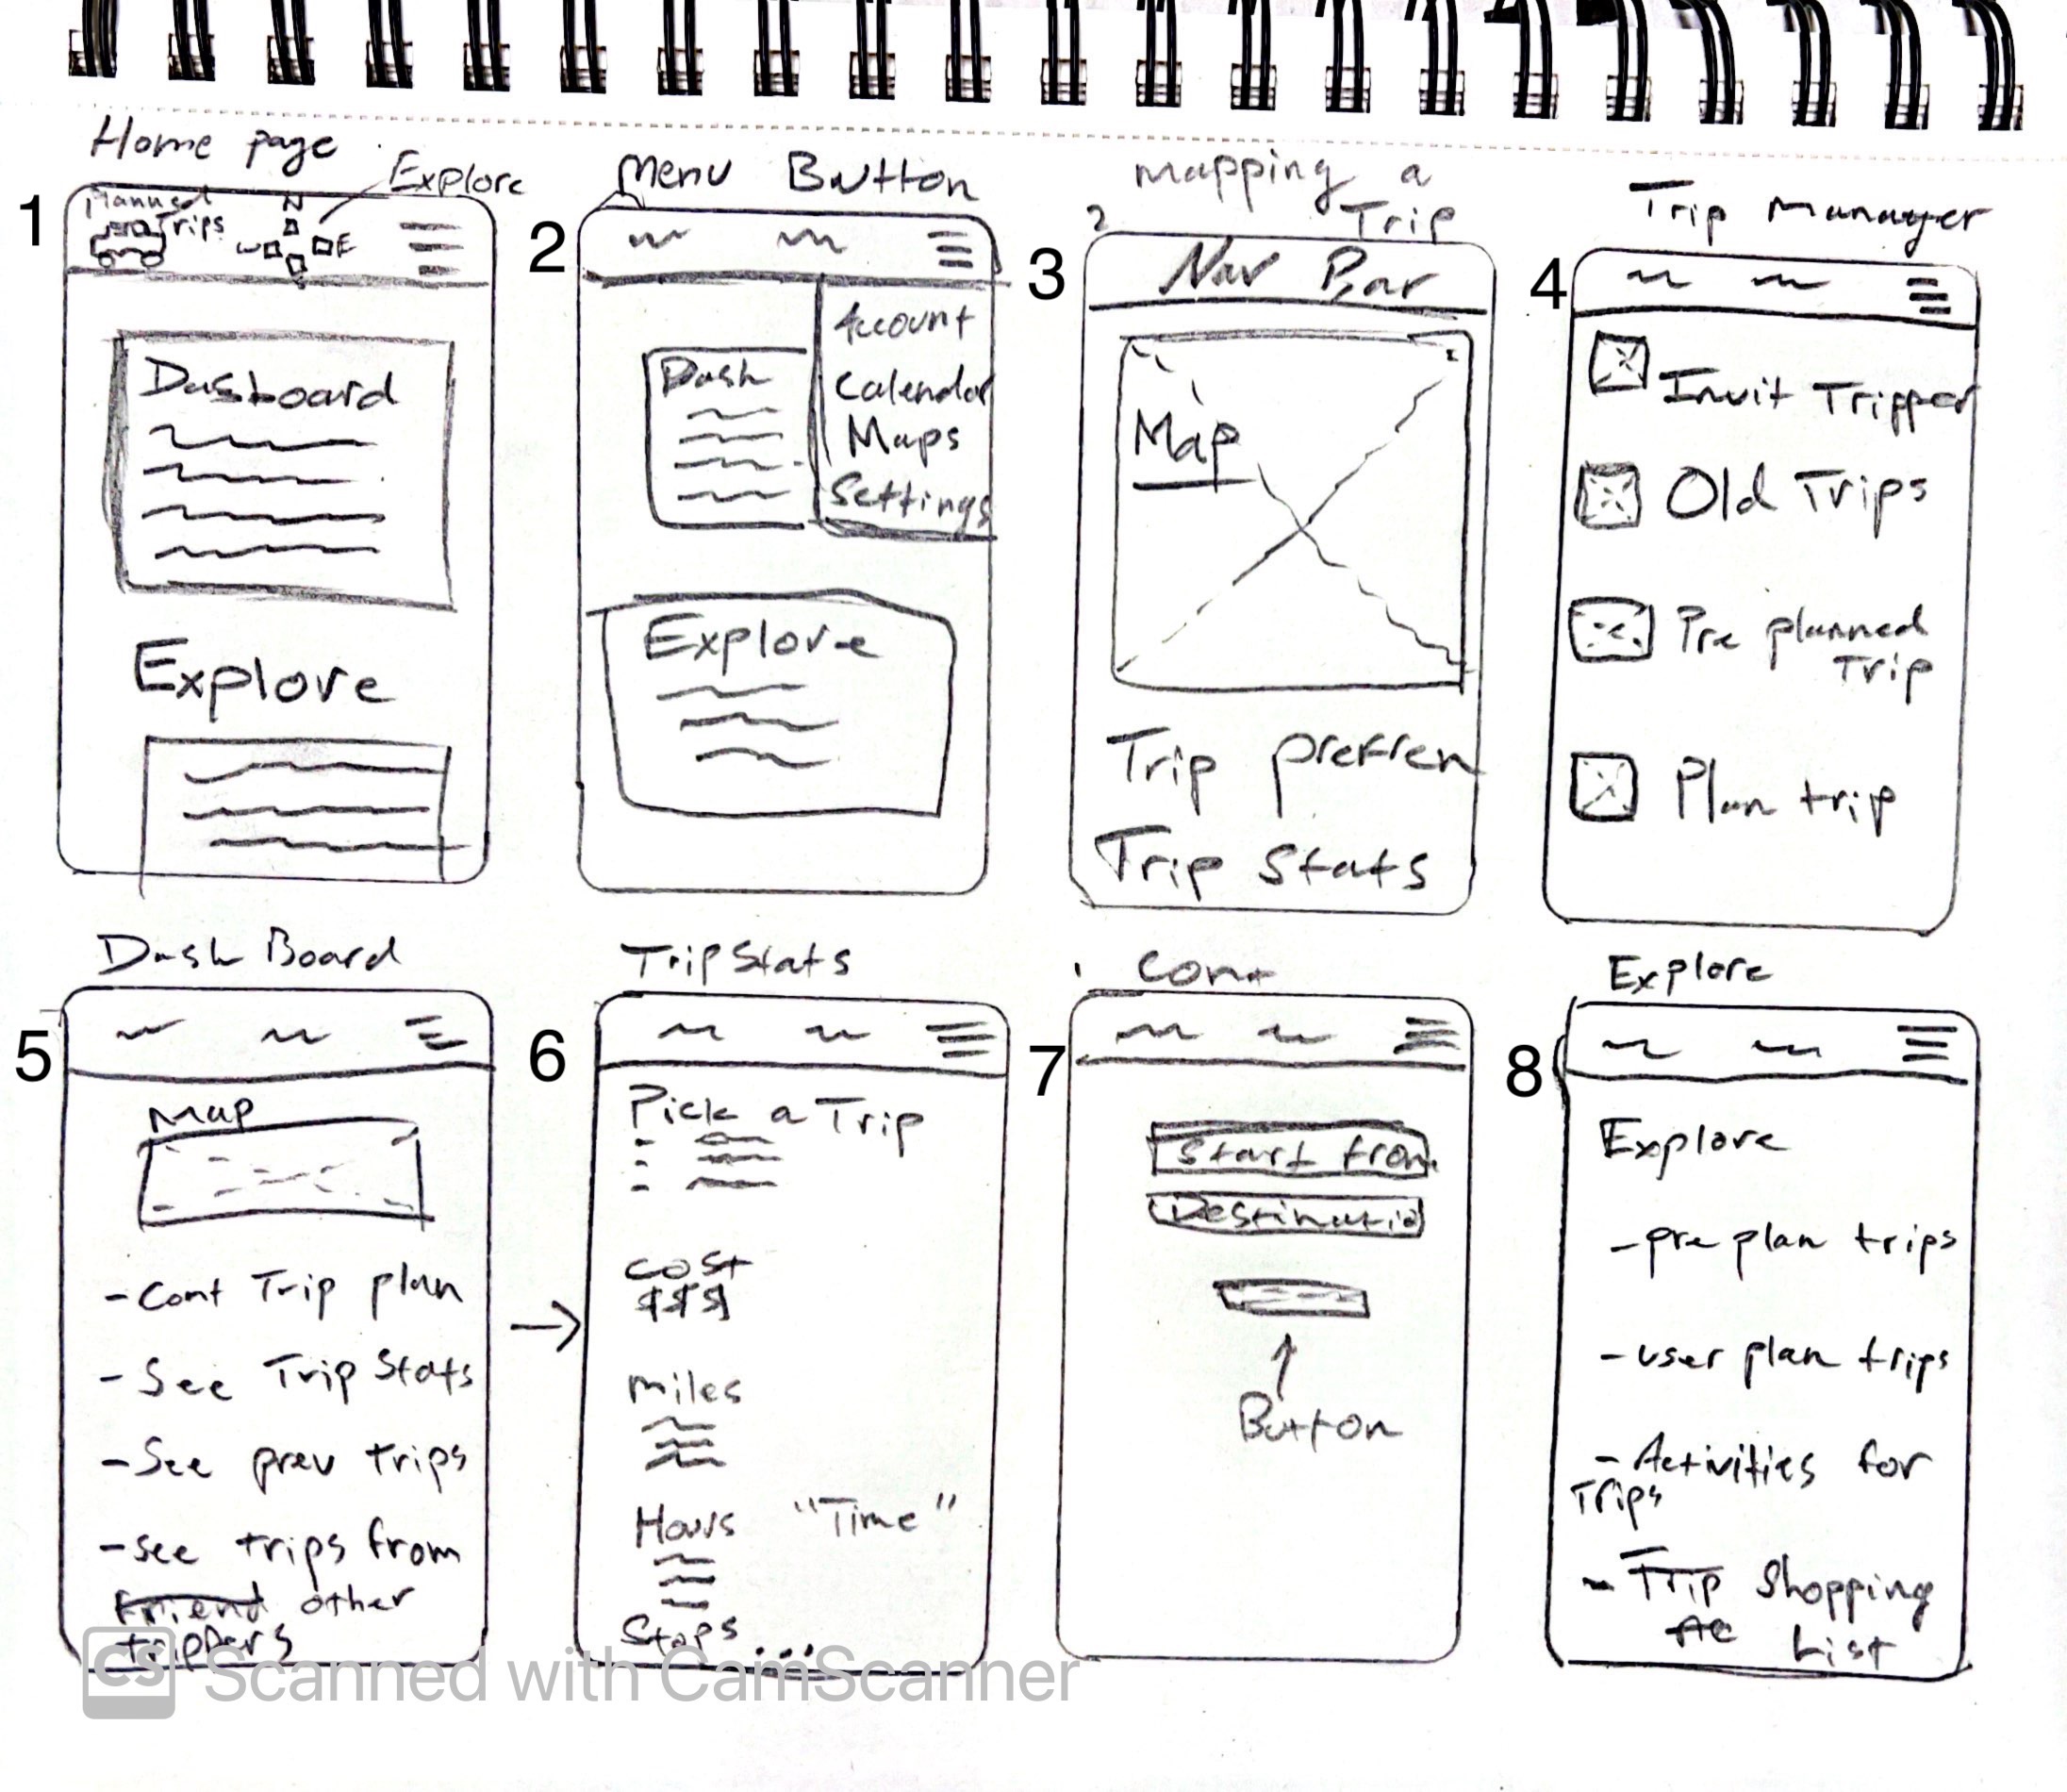 Home page
Explore
1
Planned
Trips
N
W
E
Dasboard
Explore
Menu Button
2
Account
Calendar
Maps
Settings
Dash
Explore
mapping a
Trip
3
Nav Bar
Map
Trip preffren
Trip Stats
Trip Manager
4
Invit Tripper
Old Trips
Pre planned
Trip
Plan trip
Dash Board
5
Map
- Cont Trip plan
- See Trip Stats
- See prev trips
- see trips from
Friend other
trippers
Trip Stats
6
Pick a Trip
Cost
$$$
miles
Hours "Time"
Stops ...
Cont
7
Start from
Destinatio
Button
Explore
8
Explore
- pre plan trips
- user plan trips
- Activities for
Trips
- Trip Shopping
List
CS Scanned with CamScanner